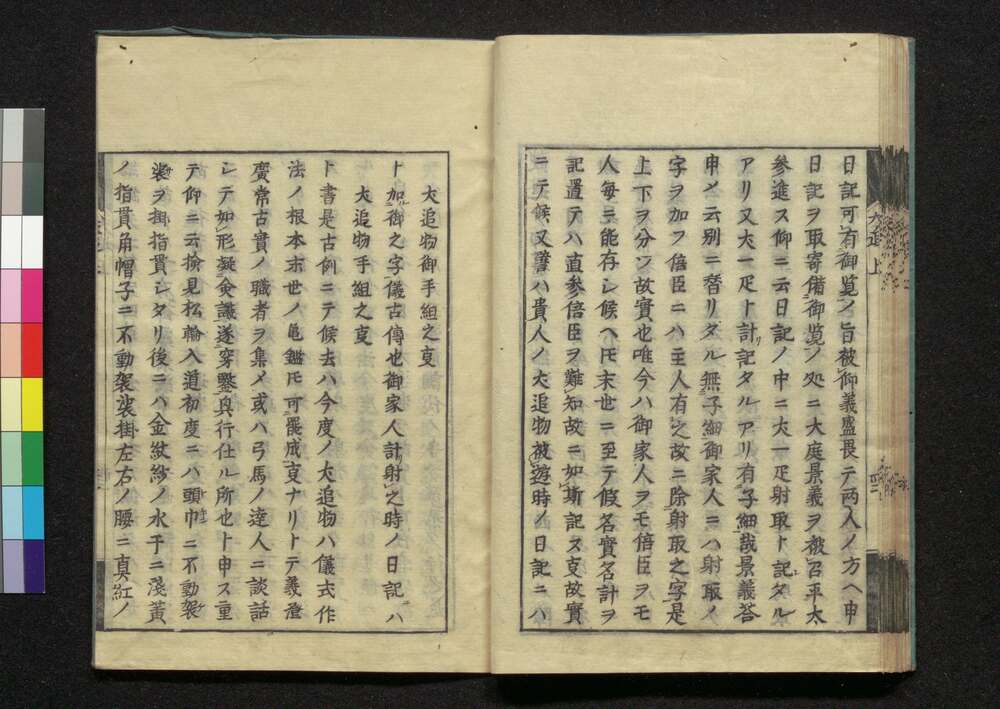 日記可有御覧ノ旨被仰義盛畏テ両人ノ方ヘ申
日記ヲ取寄備御覧ノ処ニ大庭景義ヲ被召平太
参進ス仰ニ云日記ノ中ニ犬一疋射取ト記タル
アリ又犬一疋ト計記タルアリ有子細哉景義答
申メ云別ニ替リタル無子細御家人ニハ射取ノ
字ヲ加フ倍臣ニハ主人有之故ニ除射取之字是
上下ヲ分ツ故實也唯今ハ御家人ヲモ倍臣ヲモ
人毎ニ能存シ候ヘ𪜈末世ニ至テ假名實名計ヲ
記置テハ直参倍臣ヲ難知故ニ如斯記ス叓故實
ニテ候又譬ハ貴人ノ犬追物被遊時ノ日記ニハ
犬追物御手組之叓
ト加御之字儀古傳也御家人計射之時ノ日記ハ
犬追物手組之叓
ト書是古例ニテ候去ハ今度ノ犬追物ハ儀式作
法ノ根本末世ノ亀鑑𪜈可罷成叓ナリトテ義澄
廣常古實ノ職者ヲ集メ或ハ弓馬ノ達人ニ談話
シテ如形凝僉議遂穿鑿與行仕ル所也ト申ス重
テ仰ニ云検見松輪入道初度ニハ頭巾ニ不動袈
裟ヲ掛指貫シタリ後ニハ金紋紗ノ水干ニ淺黄
ノ指貫角帽子ニ不動袈裟掛左右ノ腰ニ真紅ノ
犬追 上